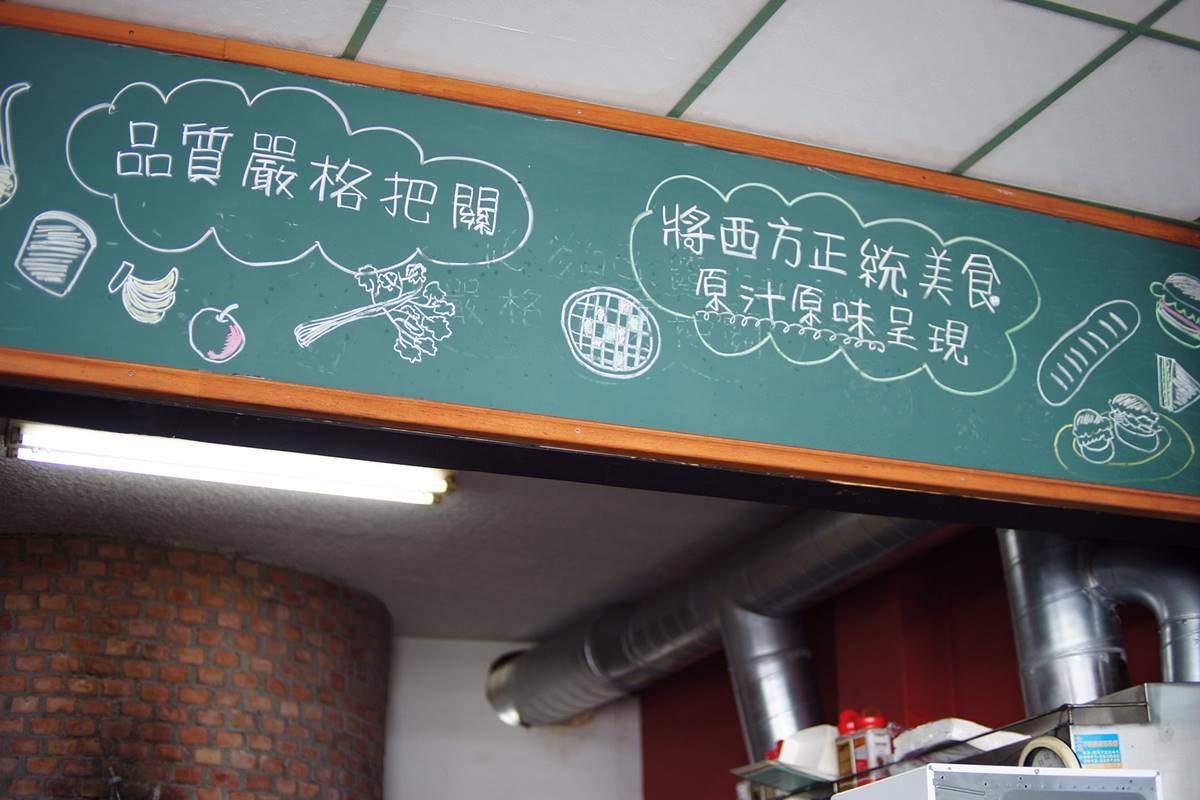 品質嚴格把關
將西方正統美食
原汁原味呈現
嚴格